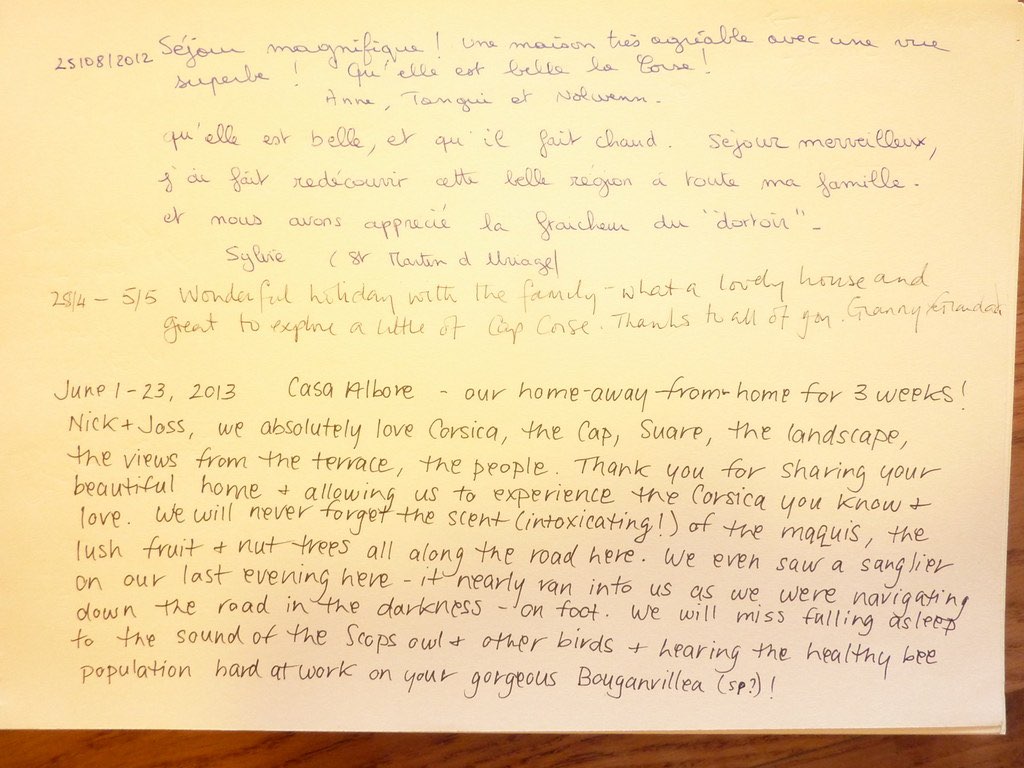 25/08/2012 Séjour magnifique! Une maison très agréable avec une vue
superbe! Qu'elle est belle la Corse!
Anne, Tangui et Nolwenn.
qu'elle est belle, et qu'il fait chaud. Séjour merveilleux,
j'ai fait redécouvrir cette belle région à toute ma famille.
et nous avons apprécié la fraicheur du "dortoir" -
Sylvie (St Martin d Uriage)
28/4 - 5/5 Wonderful holiday with the family - what a lovely house and
great to explore a little of Cap Corse. Thanks to all of you. Granny & Grandad
June 1-23, 2013 Casa Albore - our home-away-from-home for 3 weeks!
Nick + Joss, we absolutely love Corsica, the Cap, Suare, the landscape,
the views from the terrace, the people. Thank you for sharing your
beautiful home + allowing us to experience the Corsica you know +
love. We will never forget the scent (intoxicating!) of the maquis, the
lush fruit + nut trees all along the road here. We even saw a sanglier
on our last evening here - it nearly ran into us as we were navigating
down the road in the darkness - on foot. We will miss falling asleep
to the sound of the Scops owl + other birds + hearing the healthy bee
population hard at work on your gorgeous Bouganvillea (sp?)!